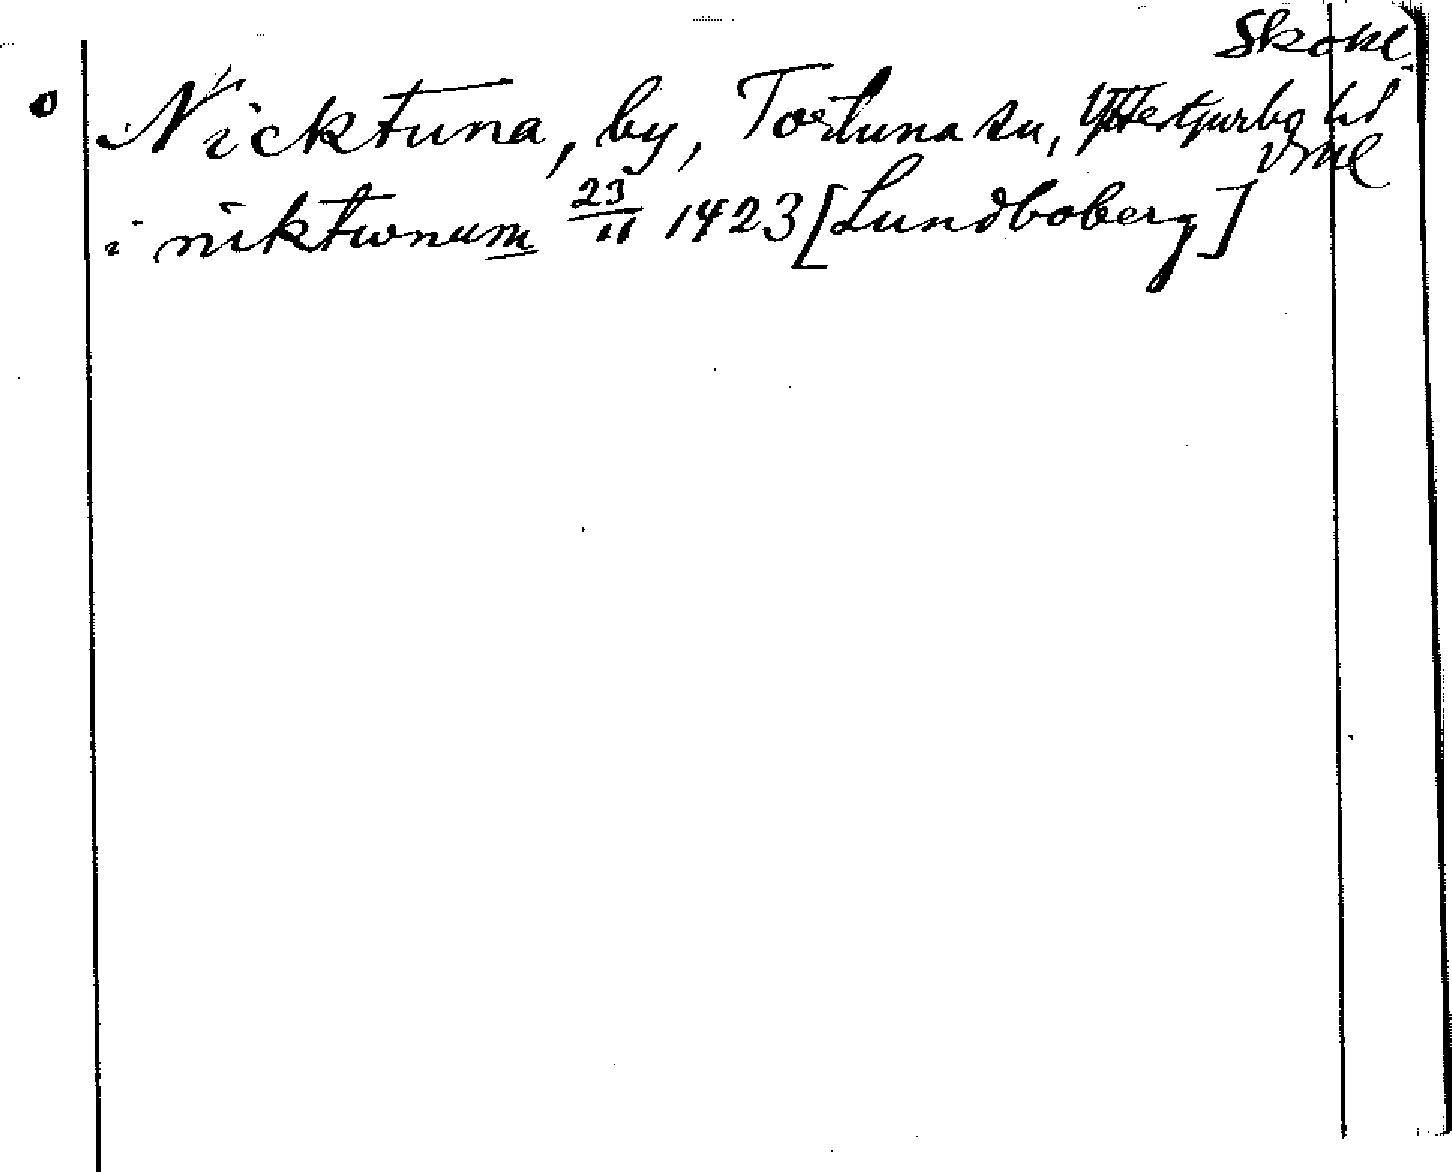 Skokl.
Nicktuna, by, Tortuna sn, Yttertjurbo hd
Vml
i niktwnum 23/11 1423 [Lundboberg]